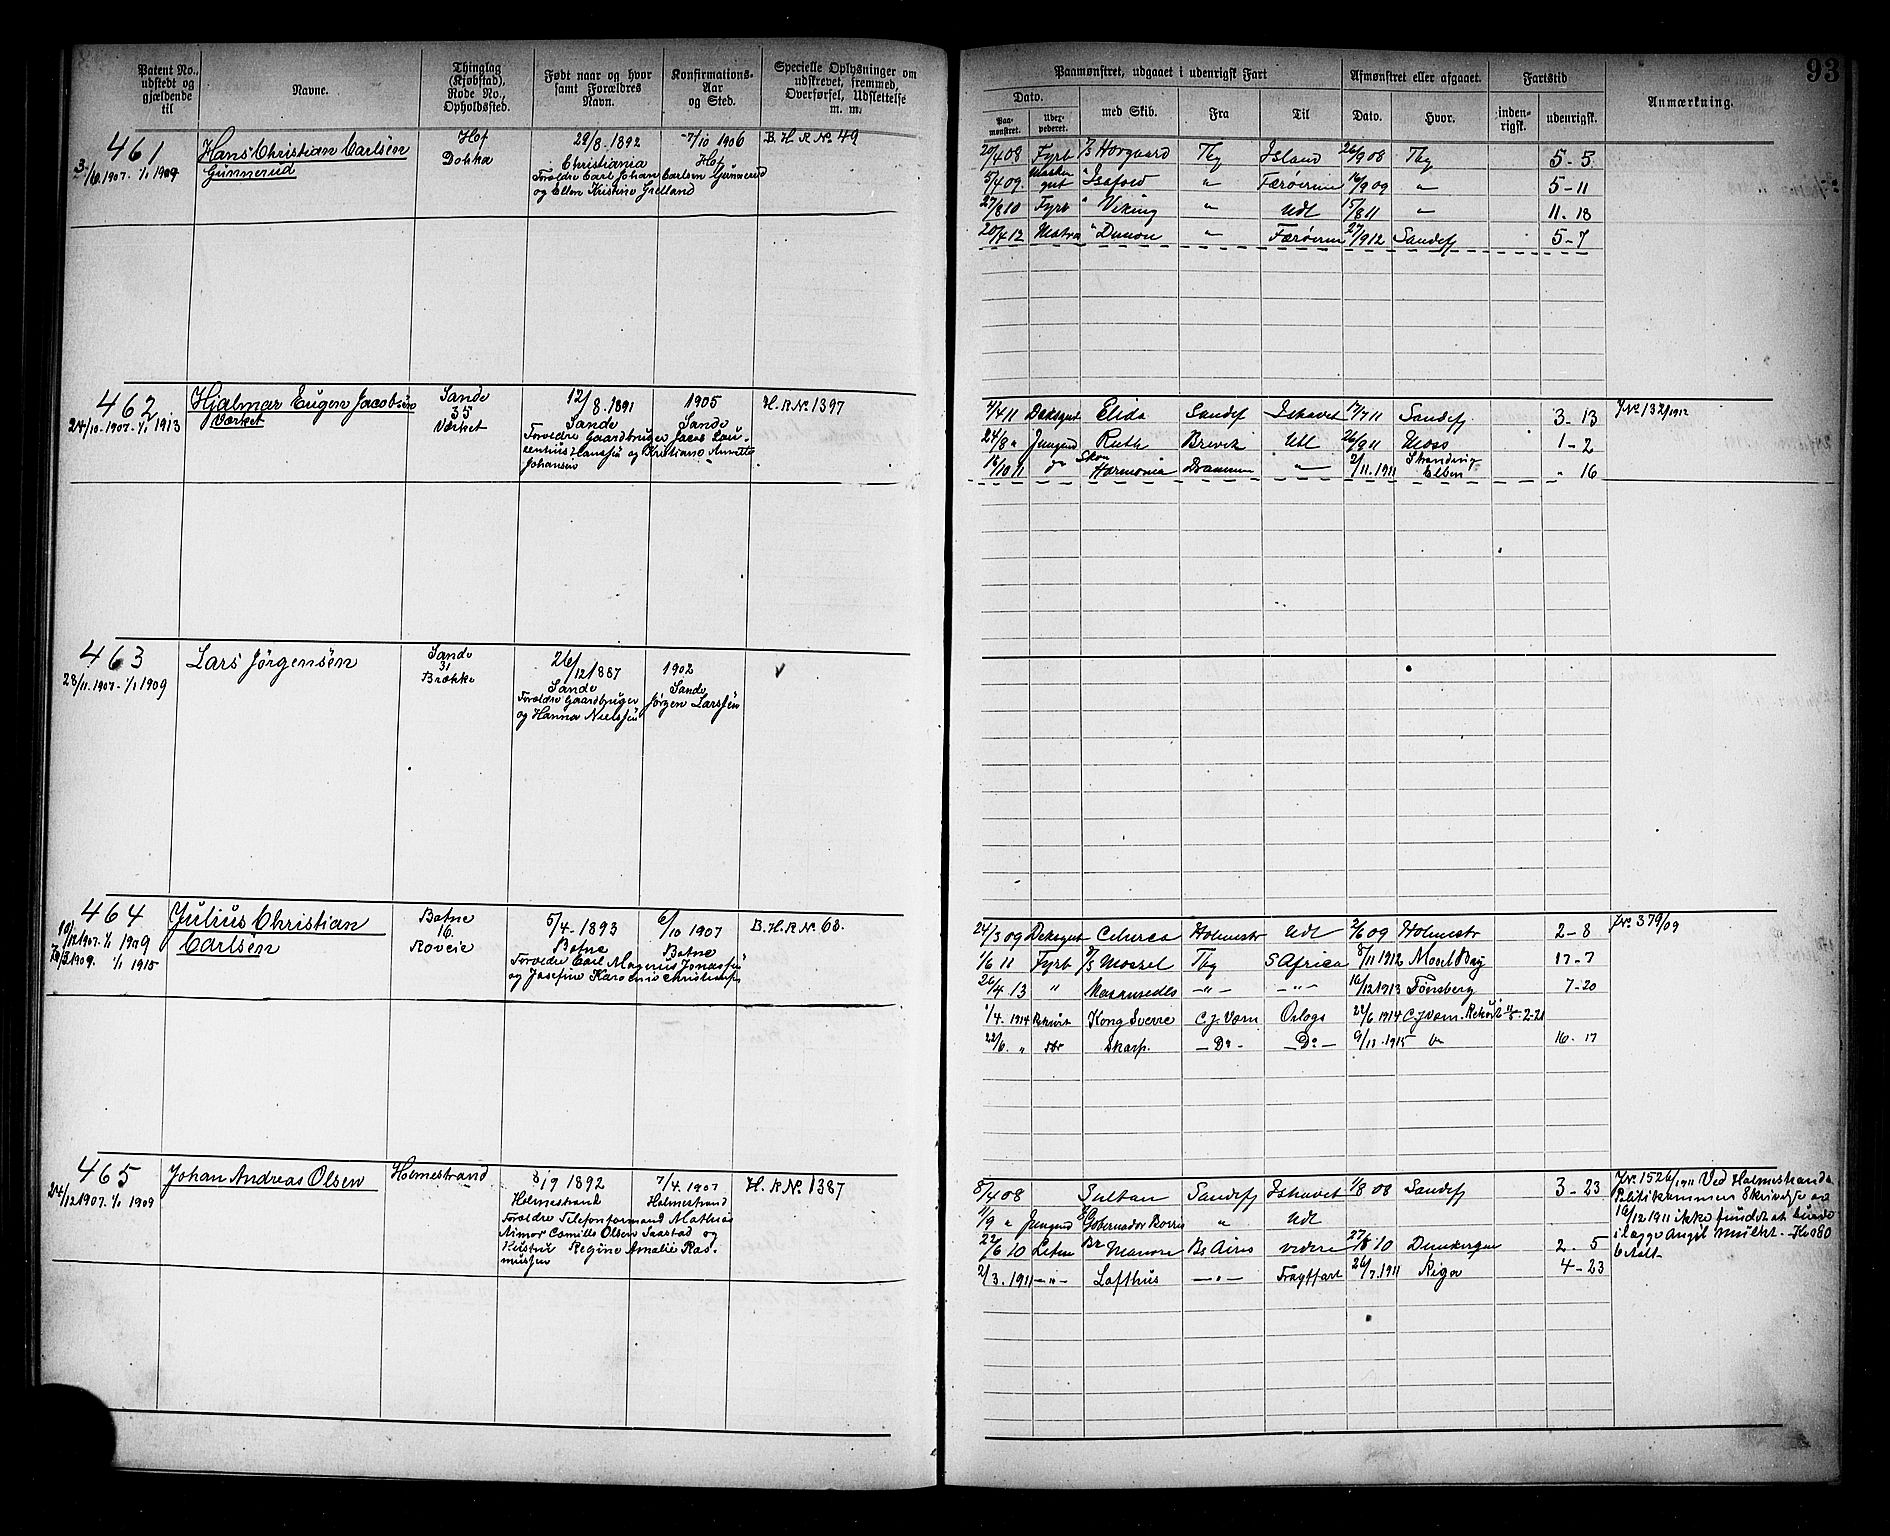 93
Patent No., udstedt og gjældende til
Navne.
Thinglag (Kjøbstad), Rode No., Opholdssted.
Født naar og hvor samt Forældres Navn.
Konfirmations- Aar og Sted.
Specielle Oplysninger om udskrevet, fremmed, Overførsel, Udslettelse m. m.
Paamønstret, udgaaet i udenrigsk Fart
Afmønstret eller afgaaet.
Fartstid
Anmærkning.
Dato.
Paa- mønstret.
med Skib.
Fra
Til
Dato.
Hvor.
inden- rigsk.
udenrigsk.
461
1907. 1/1 1909
Hans Christian Carlsen
Gunnerud
Hof
Dokka
29/8. 1892
Christiania
Forældre Carl Johan Carlsen Gunnerud
og Ellen Kristine Grelland
7/10 1906
Hof
B. H. R No 49
20/4 08 Fyrb Tbg Island 26/9 08 Tbg 5-5
5/4 09. " Isafold " Færøerne 16/9 09 " 5-11
27/8 10 Fyrb " Viking " Udl 15/8 11 " 11. 18
20/4 12 Matros " " Færøerne 27/9 12 Sandefj 5-7
462
24/10. 1907. 1/1 1913
Hjalmar Eugen Jacobsen
Værket
Sande
35
Værket
12/8. 1891
Sande
Forældre Gaardbruger Jacob Lau-
rentius Hanssen og Kristiane Annette
Johansen
1905
Sande
H. R No. 1397
1/4 11 Deksgut Elida Sandef Ishavet 17/7 11 Sandefj 3-13
24/8 " Jungmd Ruth Brevik Udl 26/9 11 Moss 1-2
18/10 11 do Skon Harmonia Drammen " 2/11. 1911 Strandning Elben " 16
J.No. 132/1912
463
28/11. 1907. 1/1 1909
Lars Jørgensen
Sande
31
Brække
26/12 1887
Sande
Forældre Gaardbruger Jørgen Larssen
og Hanna Nielssen
1902
Sande
464
10/12 1907. 1/1 1909
1909. 1/1 1915
Julius Christian
Carlsen
Botne
16.
Roveie
5/4. 1893
Botne
Forældre Carl Magnus Jonassen
og Josefine Karoline Christensen
6/10 1907
Botne
B. H. R No. 68.
24/3 09 Deksgut Holmestr Udl 2/6 09 Holmestr 2-8
1/6 11 Fyrb Tbg S Africa 1912 Mosel Bay 17-7
26/4 13 " — " — — " — 16/12 1913 Tønsberg 7-20
1/4. 1914 Rekrut Kong Sverre C. J. Værn Orlogs 22/6 1914 C. J. Værn
22/6. " Skarp. — Do — — Do — 1915 16. 17
J.No. 379/09
465
24/12 1907. 1/1 1909
Johan Andreas Olsen
Holmestrand
8/9 1892
Holmestrand
Forældre Telefonformand Mathias
Camillo Olsen Saastad og
Hustru Regine Amalie Ras-
mussen
7/4. 1907
Holmestrand
H. R No. 1387
8/4 08 Sultan Sandefj Ishavet 1/8 08 Sandefj 3-23
11/9 " Jungmd Gobernador Borries " Udl
22/6 10 Letm Br Manora Bs Aires videre 10 Dunkerque 2. 5
2/3. 1911 — " — Lofthus — " — Fragtfart 26/7. 1911 Riga 4-23
J.No. 1526/1911 Ved Holmestrands
Politikammers Skrivelse av
16/12 1911 ikke fundet at burde
ilægges Angjl mulkt.
betalt